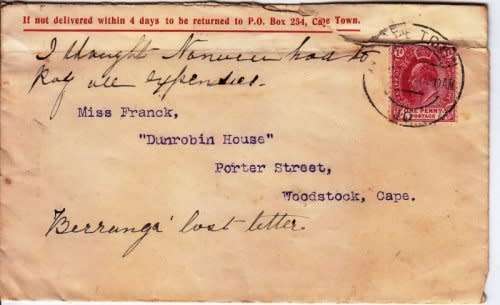 If not delivered within 4 days to be returned to P.O. Box 254, Cape Town.
I thought Norvic had to
pay all expenses.
Miss Franck,
"Dunrobin House"
Porter Street,
Woodstock, Cape.
Berranga' last letter.
ONE PENNY
POSTAGE